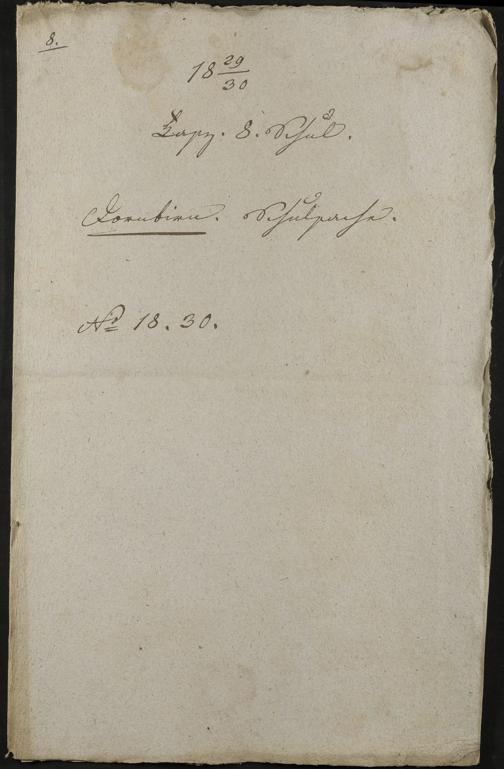 8.
18 29/30
Fasz. 8. Schul.
Dornbirn. Schulsache.
No 18. 30.